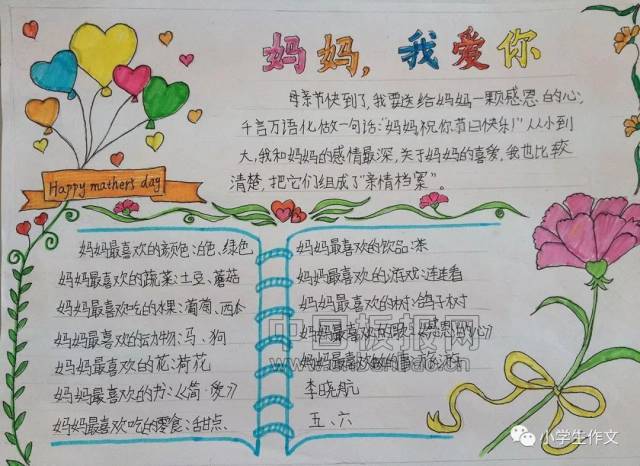 妈妈,我爱你
母亲节快到了,我要送给妈妈一颗感恩的心,
千言万语化做一句话:“妈妈祝你节日快乐!”从小到
大,我和妈妈的感情最深,关于妈妈的喜爱,我也比较
清楚,把它们组成了“亲情档案”。
Happy mather's day
妈妈最喜欢的颜色:白色、绿色
妈妈最喜欢的蔬菜:土豆、蘑菇
妈妈最喜欢吃的水果:葡萄、西瓜
妈妈最喜欢的动物:马、狗
妈妈最喜欢的花:荷花
妈妈最喜欢的书:《简·爱》
妈妈最喜欢吃的零食:甜点
妈妈最喜欢的饮品:茶
妈妈最喜欢的游戏:连连看
妈妈最喜欢的树:鸽子树
妈妈最喜欢的歌《感恩的心》
妈妈最喜欢做的事:旅游
李晓航
五、六
中国板报网
小学生作文